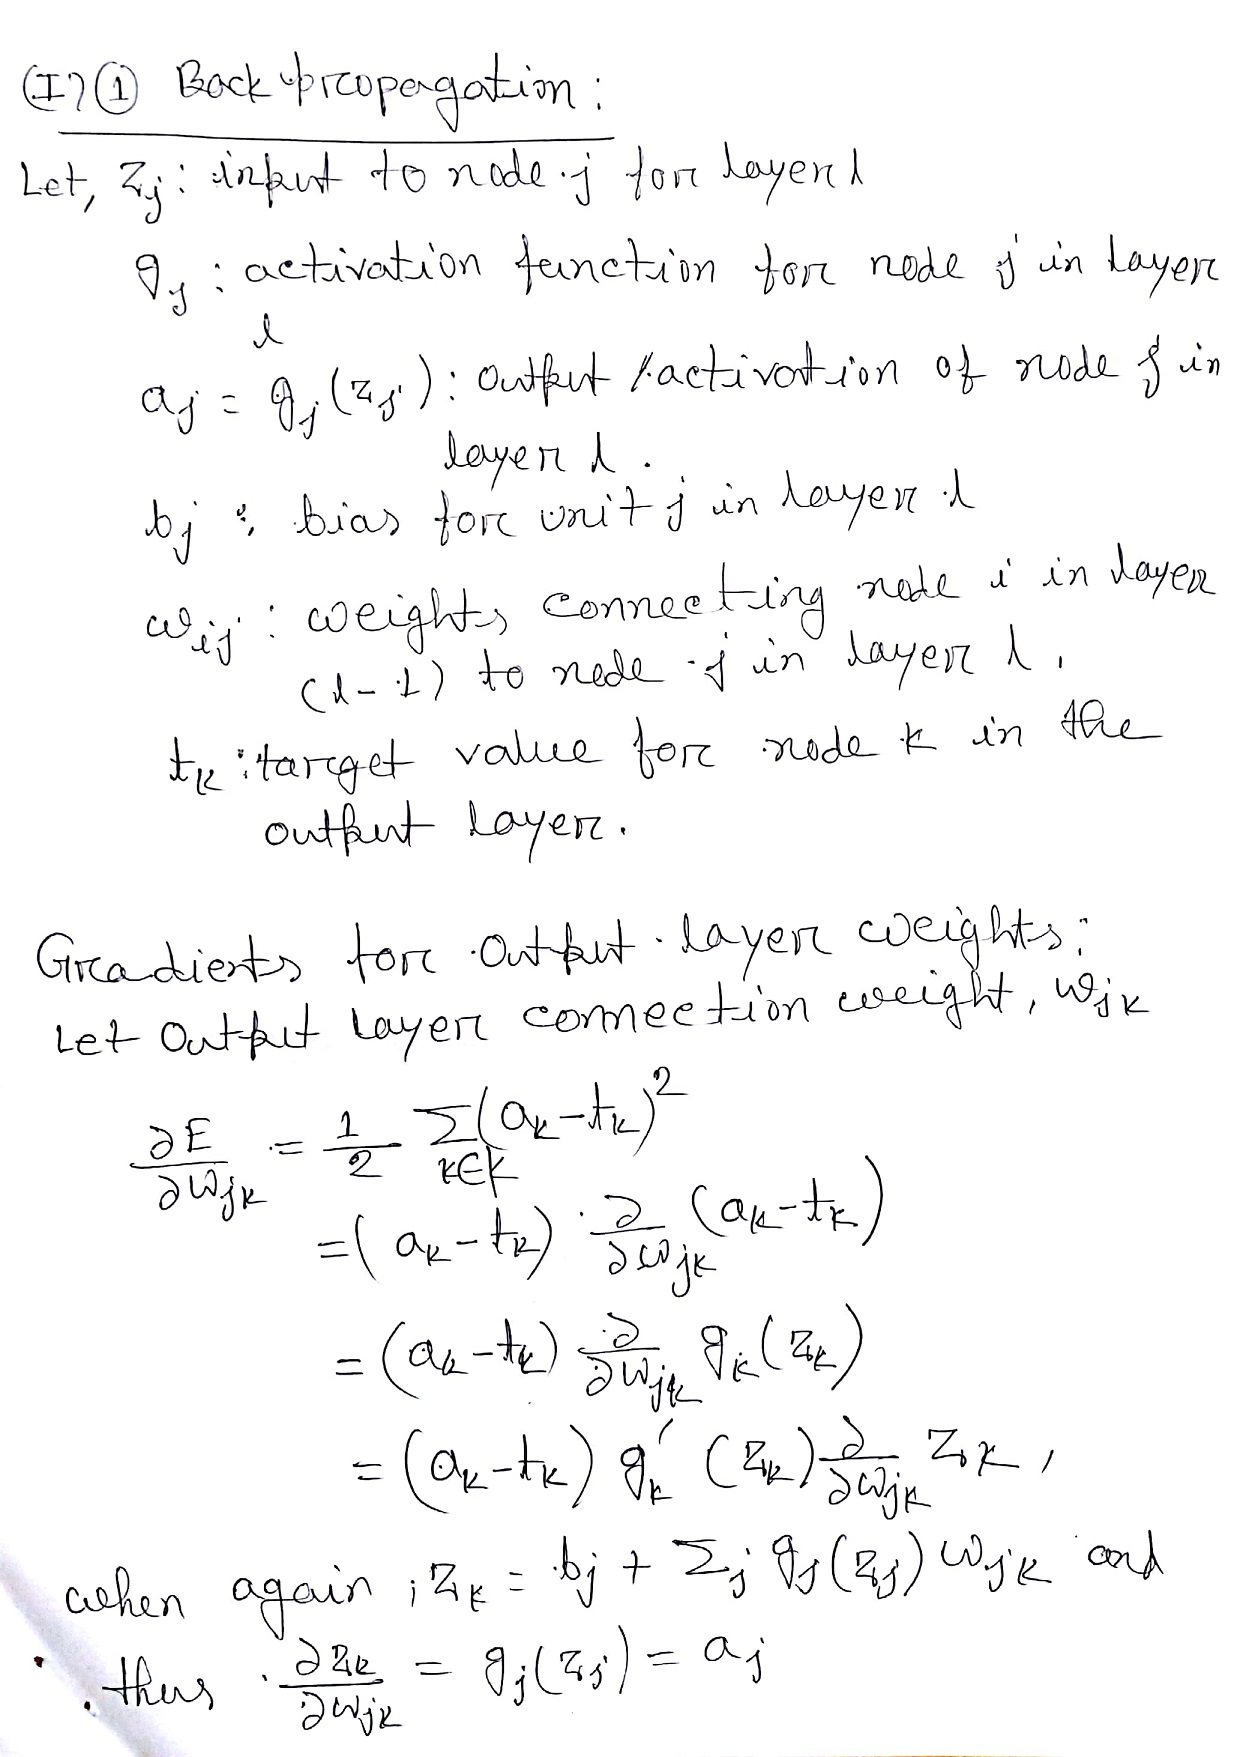 (I) ① Backpropagation:
Let, z_j: input to node j for layer l
g_j: activation function for node j in layer
l
a_j = g_j(z_j): output/activation of node j in
layer l.
b_j: bias for unit j in layer l
w_ij: weights connecting node i in layer
(l-1) to node j in layer l.
t_k: target value for node k in the
output layer.
Gradients for output layer weights:
Let output layer connection weight, w_jk
∂E/∂w_jk = 1/2 Σ_{k∈K} (a_k - t_k)^2
= (a_k - t_k) · ∂/∂w_jk (a_k - t_k)
= (a_k - t_k) ∂/∂w_jk g_k(z_k)
= (a_k - t_k) g_k'(z_k) ∂/∂w_jk z_k,
when again, z_k = b_j + Σ_j g_j(z_j) w_jk and
thus ∂z_k/∂w_jk = g_j(z_j) = a_j